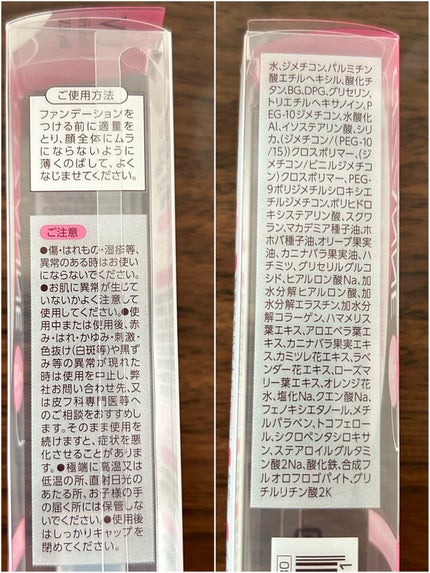 ご使用方法
ファンデーションを
つける前に適量を
とり、顔全体にムラ
にならないように
薄くのばして、よく
なじませてください。
ご注意
●傷・はれもの・湿疹等、
異常のある時はお使い
にならないでください。
●お肌に異常が生じて
いないかよく注意して
使用してください。●使
用中または使用後、赤
み・はれ・かゆみ・刺激・
色抜け(白斑等)や黒ず
み等の異常が現れた
時は使用を中止し、弊
社お問い合わせ先、又
は皮フ科専門医等へ
のご相談をおすすめし
ます。そのまま使用を
続けますと、症状を悪
化させることがありま
す。●極端に高温又は
低温の所、直射日光の
あたる所、お子様の手
の届く所には保管しな
いでください。●使用後
はしっかりキャップを
閉めてください。
水、ジメチコン、パルミチン
酸エチルヘキシル、酸化チ
タン、BG、DPG、グリセリン、
トリエチルヘキサノイン、P
EG-10ジメチコン、水酸化
Al、イソステアリン酸、シリ
カ、(ジメチコン/(PEG-10
/15))クロスポリマー、(ジ
メチコン/ビニルジメチコ
ン)クロスポリマー、PEG-
9ポリジメチルシロキシエ
チルジメチコン、ポリヒドロ
キシステアリン酸、スクワ
ラン、マカデミア種子油、ホ
ホバ種子油、オリーブ果実
油、カニナバラ果実油、ハ
チミツ、グリセリルグルコ
シド、ヒアルロン酸Na、加
水分解ヒアルロン酸、加
水分解エラスチン、加水分
解コラーゲン、ハマメリス
葉エキス、アロエベラ葉エ
キス、カニナバラ果実エキ
ス、カミツレ花エキス、ラベ
ンダー花エキス、ローズマ
リー葉エキス、オレンジ花
水、塩化Na、クエン酸Na、
フェノキシエタノール、メチ
ルパラベン、トコフェロー
ル、シクロペンタシロキサ
ン、ステアロイルグルタミ
ン酸2Na、酸化鉄、合成フ
ルオロフロゴパイト、グリ
チルリチン酸2K